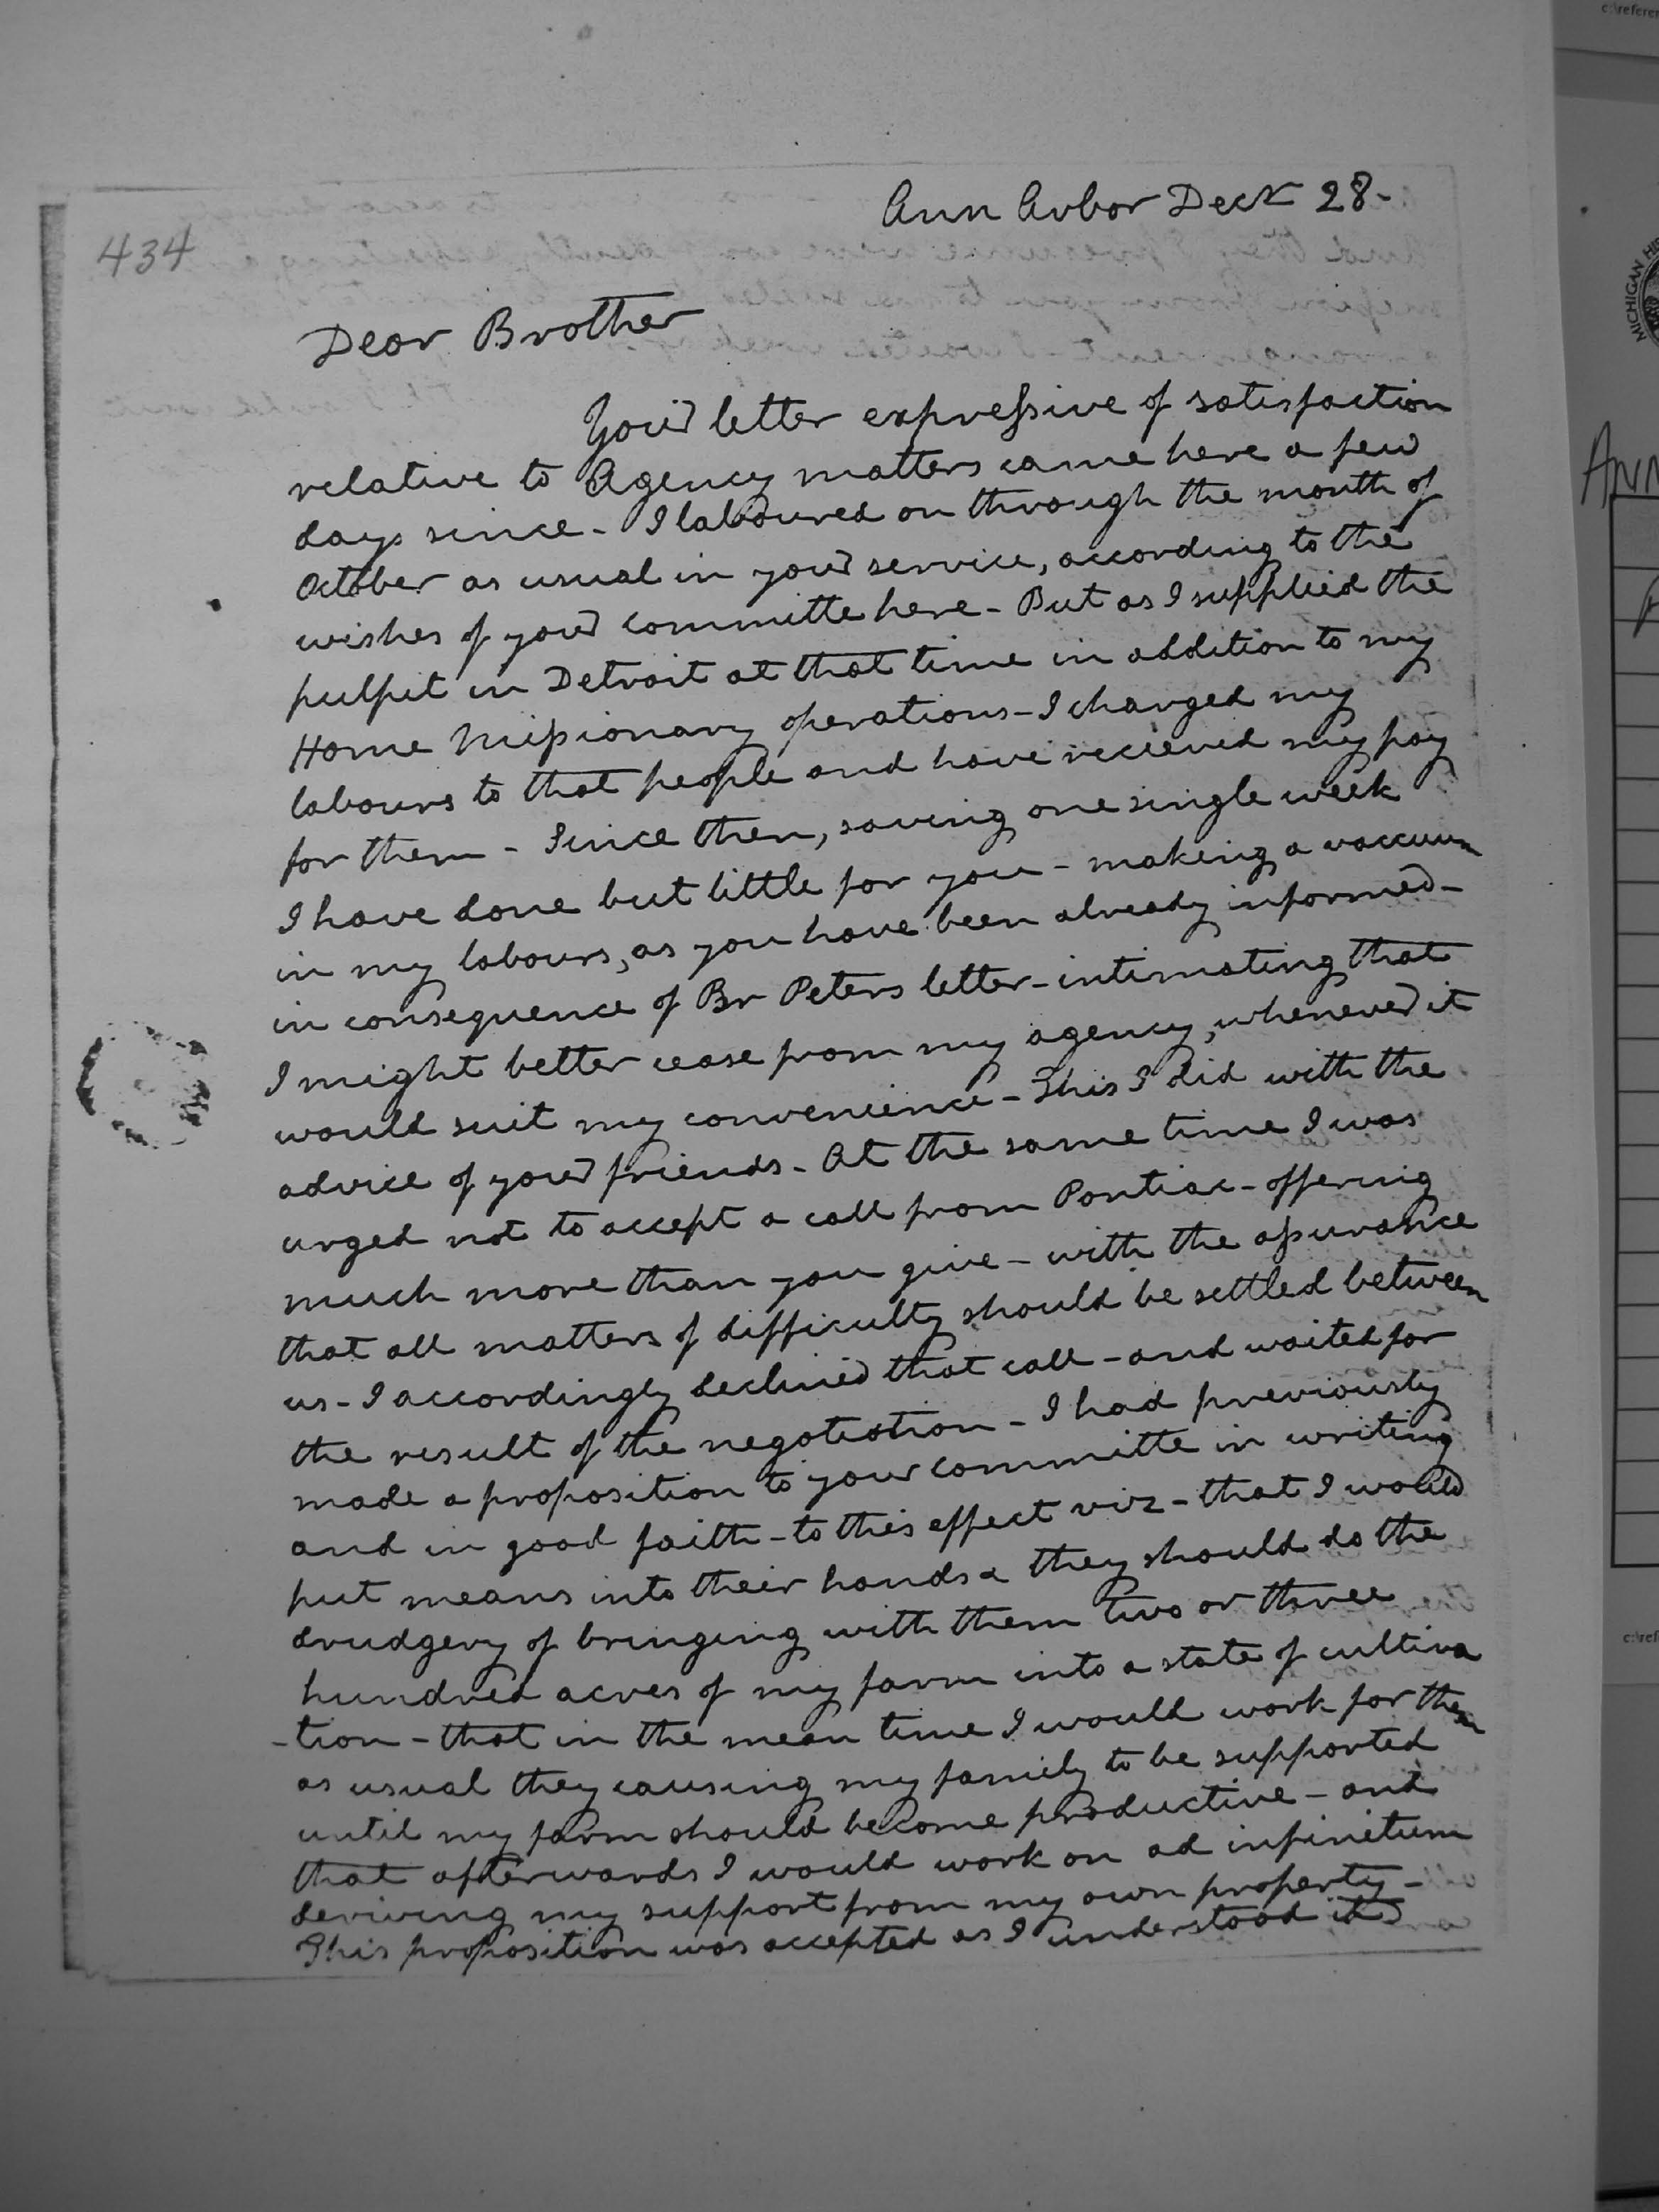 c:\refere
434
Ann Arbor Decr 28-
MICHIGAN HIS
Dear Brother
Your letter expressive of satisfaction
relative to Agency matters came here a few
days since - I laboured on through the month of
October as usual in your service, according to the
wishes of your committe here - But as I supplied the
pulpit in Detroit at that time in addition to my
Home Missionary operations - I charged my
labours to that people and have recieved my pay
for them - Since then, saving one single week
I have done but little for you - making a vaccuum
in my labours, as you have been already informed -
in consequence of Br Peters letter - intimating that
I might better cease from my agency, whenever it
would suit my convenience - This I did with the
advice of your friends - At the same time I was
urged not to accept a call from Pontiac - offering
much more than you give - with the assurance
that all matters of difficulty should be settled between
us - I accordingly declined that call - and waited for
the result of the negotiation - I had previously
made a proposition to your committe in writing
and in good faith - to this effect viz - that I would
put means into their hands & they should do the
drudgery of bringing with them two or three
hundred acres of my farm into a state of cultiva
-tion - that in the mean time I would work for them
as usual they causing my family to be supported
until my farm should become productive - and
that afterwards I would work on ad infinitum
deriving my support from my own property -
This proposition was accepted as I understood it
ANN
c:\ref